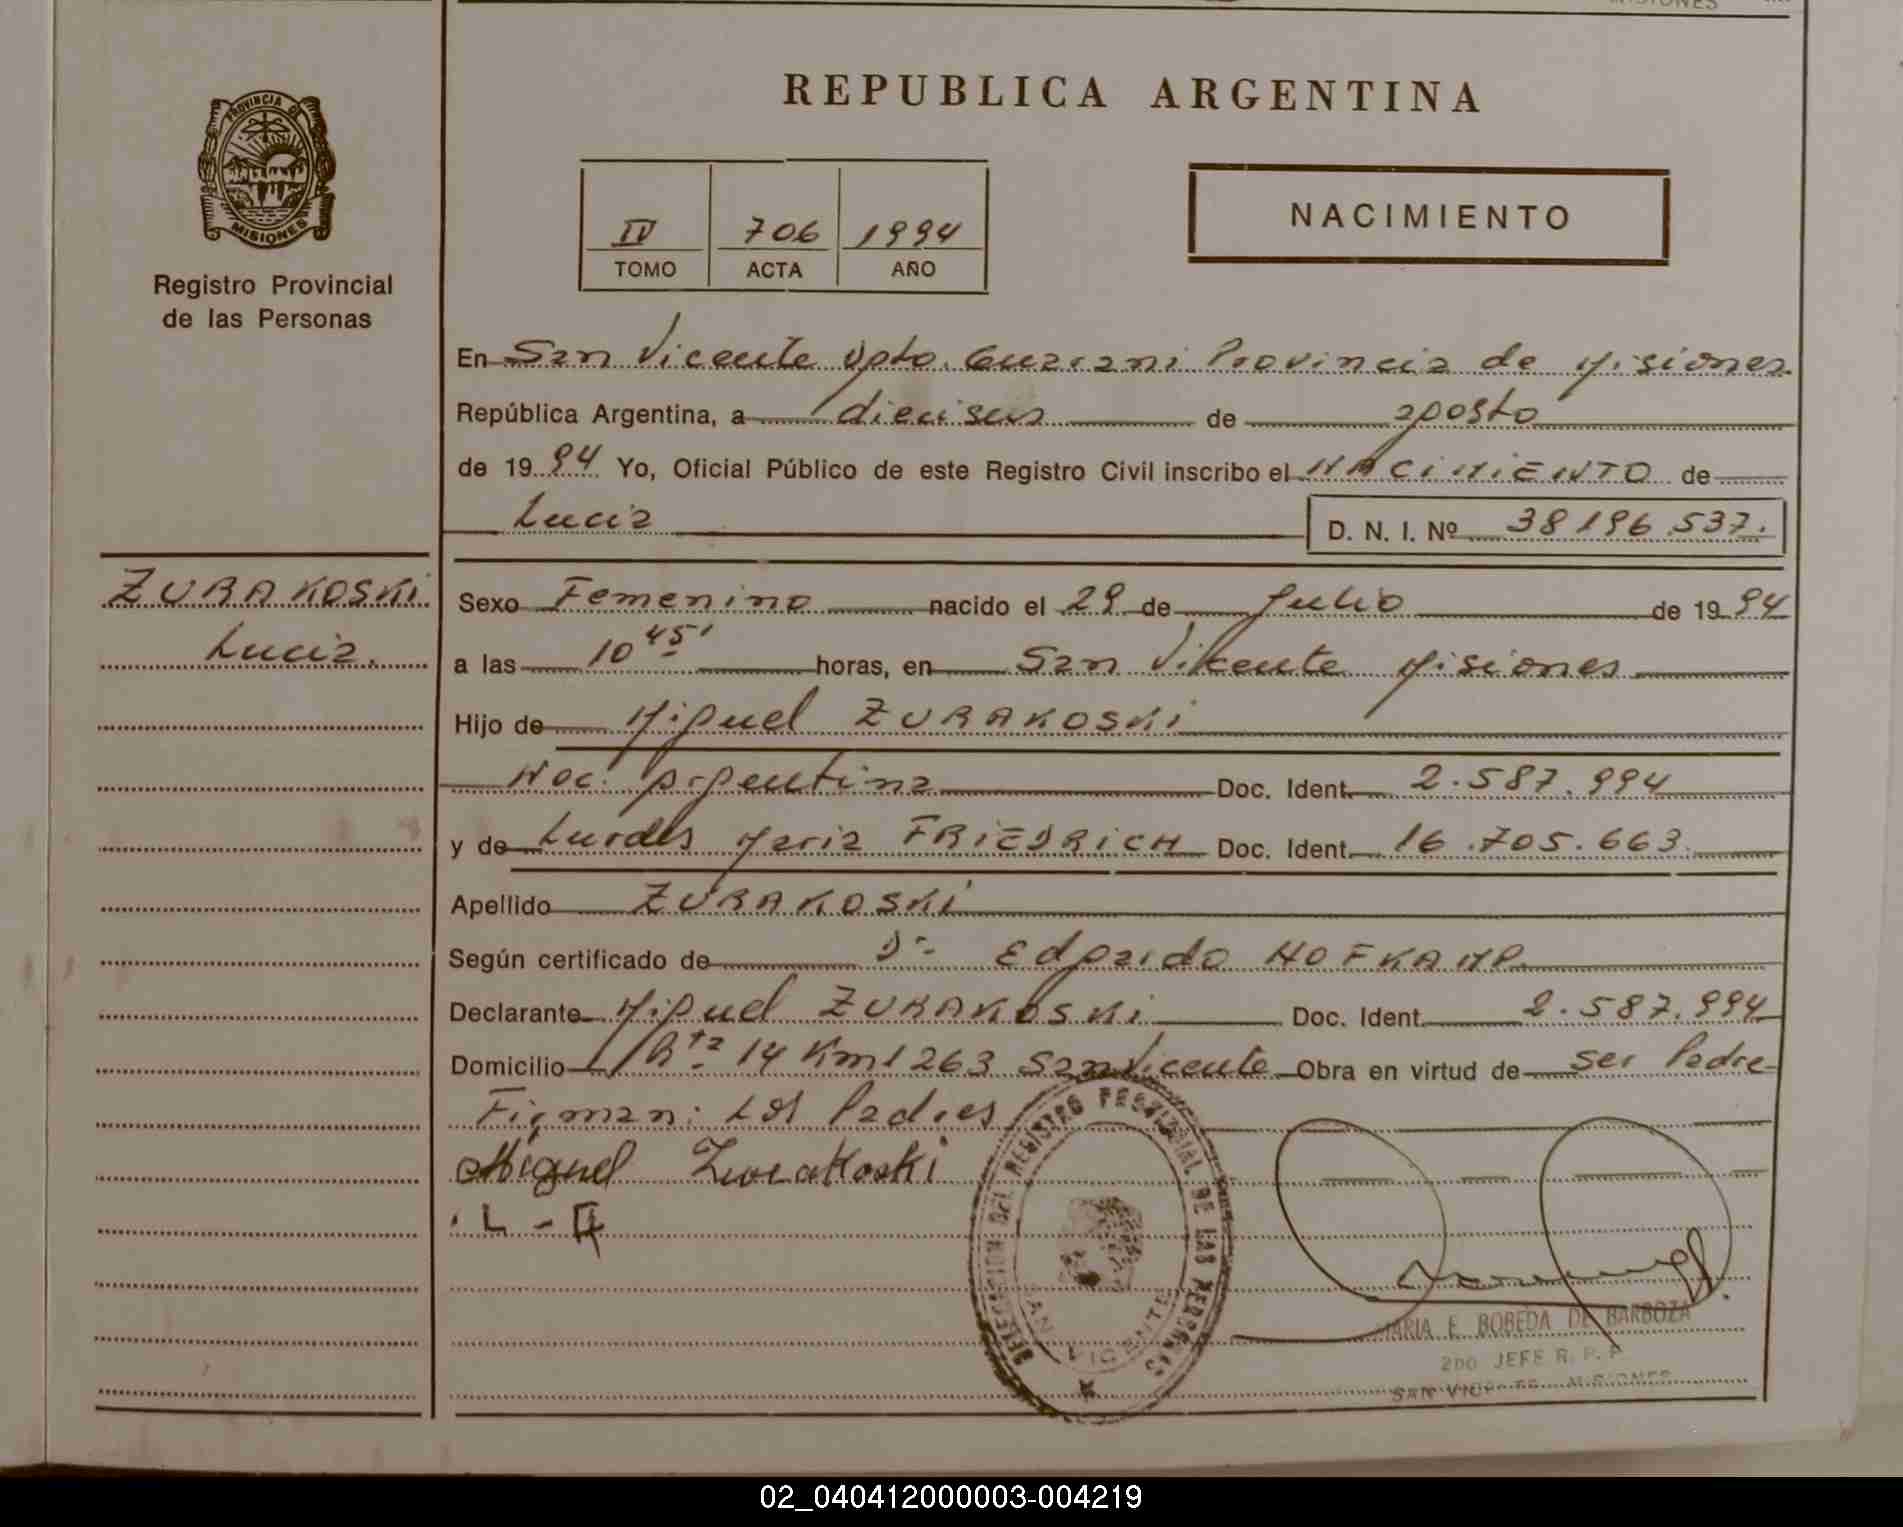 MISIONES
REPUBLICA ARGENTINA
PROVINCIA DE
MISIONES
Registro Provincial
de las Personas
IV 706 1994
TOMO ACTA AÑO
NACIMIENTO
En San Vicente Dpto. Guarani Provincia de Misiones
República Argentina, a dieciseis de agosto
de 1994 Yo, Oficial Público de este Registro Civil inscribo el NACIMIENTO de
Lucia D. N. I. Nº 38196.537.
ZURAKOSKI
Lucia.
Sexo Femenino nacido el 29 de Julio de 1994
a las 10 45' horas, en San Vicente Misiones
Hijo de Miguel ZURAKOSKI
Nac. Argentina Doc. Ident. 2.587.994
y de Lurdes Maria FRIEDRICH Doc. Ident. 16.705.663
Apellido ZURAKOSKI
Según certificado de Dr. Edgardo HOFKAMP
Declarante Miguel ZURAKOSKI Doc. Ident. 2.587.994
Domicilio Rta 14 Km 1263 San Vicente Obra en virtud de ser Padre
Firman: Los Padres
Miguel Zurakoski
L - F
DELEGACION DEL REGISTRO PROVINCIAL DE LAS PERSONAS
SAN VICENTE
MARIA E. BOBEDA DE BARBOZA
2DO JEFE R. P. P
SAN VICENTE MISIONES
02_040412000003-004219